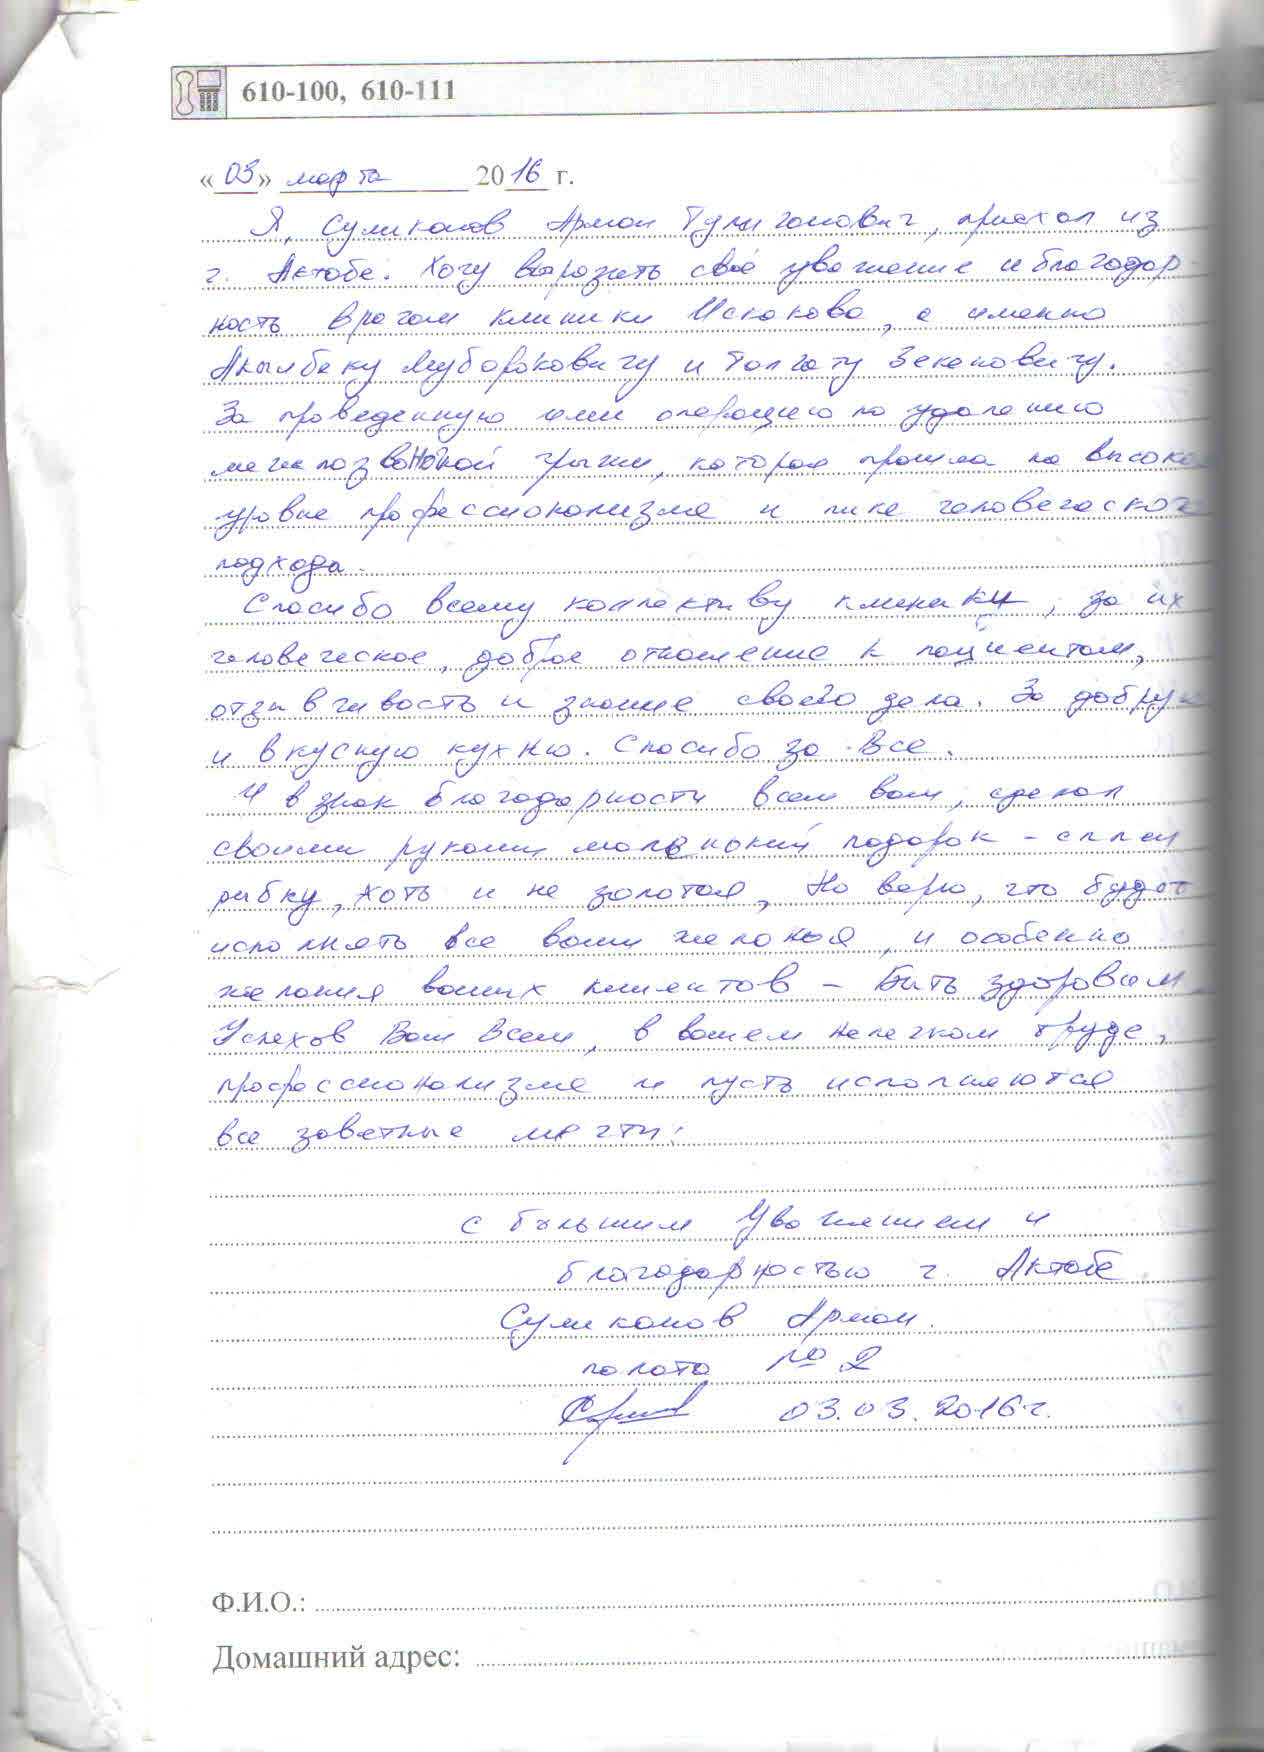 610-100, 610-111
«03» марта 2016 г.
Я, Сулиманов Арман Тулигонович, приехал из
г. Актобе. Хочу выразить своё уважение и благодар-
ность врачам клиники Искакова, а именно
Акылбеку Муборокович​у и Толгату Зекеновичу.
За проведенную ими операцию по удалению
межпозвоночной грыжи, которая прошла на высоком
уровне профессионализма и пике человеческого
подхода.
Спасибо всему коллективу клиники, за их
человеческое, доброе отношение к пациентам,
отзывчивость и знание своего дела. За добрую
и вкусную кухню. Спасибо за все.
И в знак благодарности всем вам, сделал
своими руками маленький подарок - сплел
рыбку, хоть и не золотая, но верю, что будет
исполнять все ваши желанья, и особенно
желания ваших клиентов - Быть здоровым.
Успехов Вам всем, в вашем нелегком труде,
профессионализма и пусть исполняются
все заветные мечты.
с большим уважением и
благодарностью г. Актобе
Сулиманов Арман.
палата № 2
03.03.2016г.
Ф.И.О.:
Домашний адрес: